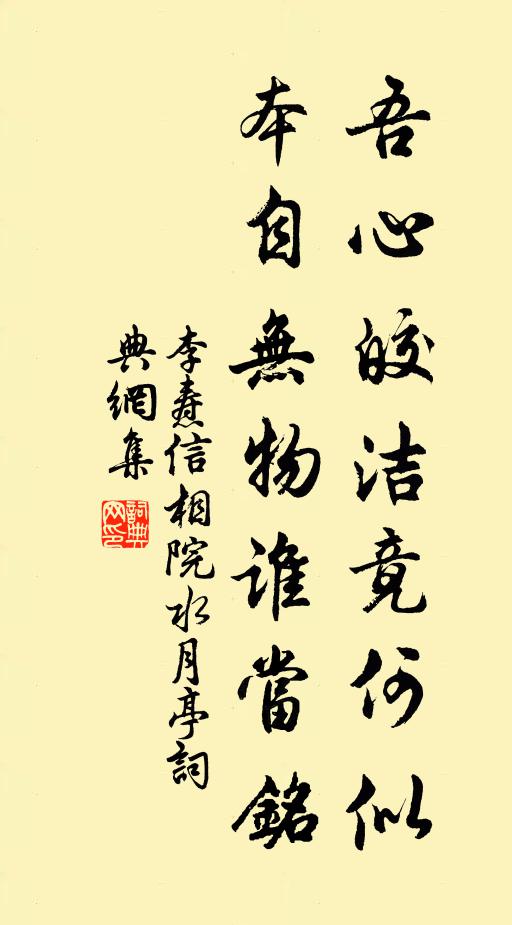 吾心皎洁竟何似
本自無物誰當銘
李燾信相院水月亭詞
典網集
詞典
网印